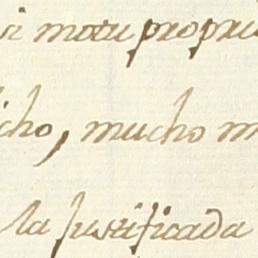 i motu propri
cho, mucho m
la justificada